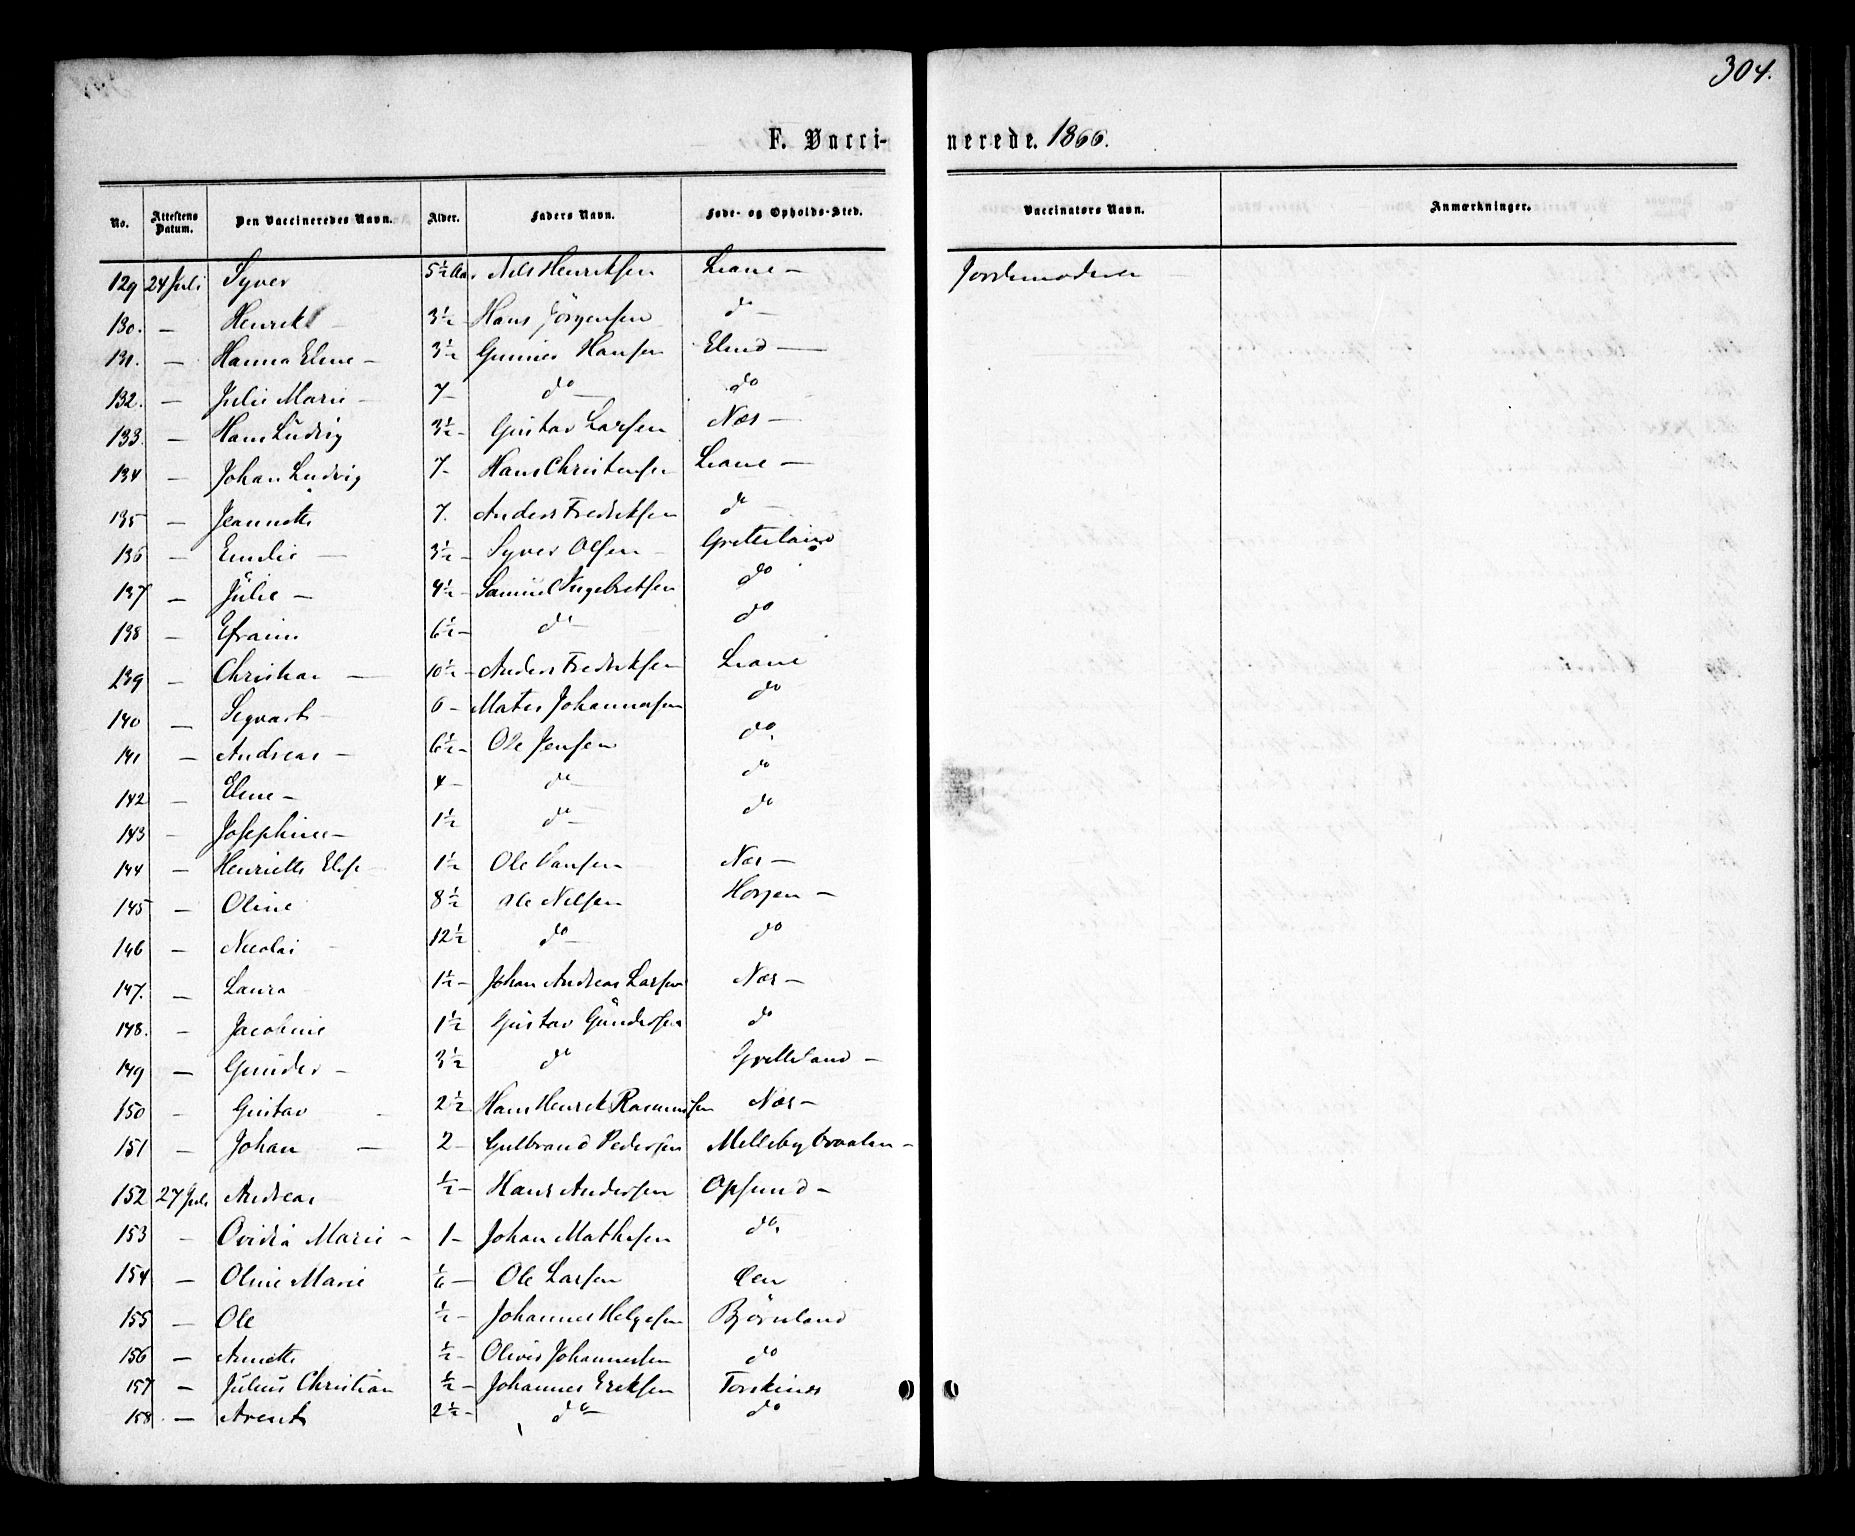 304.
F. Vaccinerede. 1866.
No. Attestens Datum. Den Vaccineredes Navn. Alder. Faders Navn. Føde- og Opholds-Sted. Vaccinators Navn. Anmærkninger.
129 24 Juli Syver 5½ Aar Nels Henriksen Liane – Jordemoderen
130. – Henrik – 3½ – Hans Jörgensen do –
131. – Hanna Eline – 3½ Gunner Hansen Elind –
132. – Julie Marie – 7 – do – do
133. – Hans Ludvig 3½ – Gustav Larsen Næs –
134 – Johan Ludvig 7 – Hans Christensen Liane –
135 – Jeannette 7. Anders Fredriksen do –
136 – Emilie – 3½ – Syver Olsen – Gretteland
137 – Julie – 4½ – Samuel Ingebretsen do
138 – Efraim 6½ – do do
139 – Christian – 10½ – Anders Fredriksen Liane
140 – Segvart – 6 – Mates Johannesen do
141 – Andreas – 6½ – Ole Jensen do.
142 – Eline – 4 – do – do
143 – Josephine – 1½ do – do
144 – Henriette Else – 1½ Ole Hansen Næs –
145 – Oline 8½ Ole Nelsen Horgen –
146 – Nicolai – 12½ do – do
147. – Laura – 1½ – Johan Andreas Larsen Næs –
148. – Jacobine 1½ Gustav Gundersen do
149 – Gunder – 3½ do Gretteland –
150 – Gustav – 2½ Hans Henrek Rasmussen Næs –
151 – Johan – 2 – Gulbrand Pedersen Mellebybraaten –
152 27 Juli Andreas – ½ – Hans Andersen Opsund –
153 – Ovidia Marie – 1 – Johan Mathesen do.
154 – Oline Marie 1/6 – Ole Larsen Øen
155 – Ole ½ – Johannes Helgesen Björnland
156 – Annette ½ – Oliver Johannessen do
157 – Julius Christian ½ – Johannes Ereksen Torskenes
158. – Arent 2½ – do – do